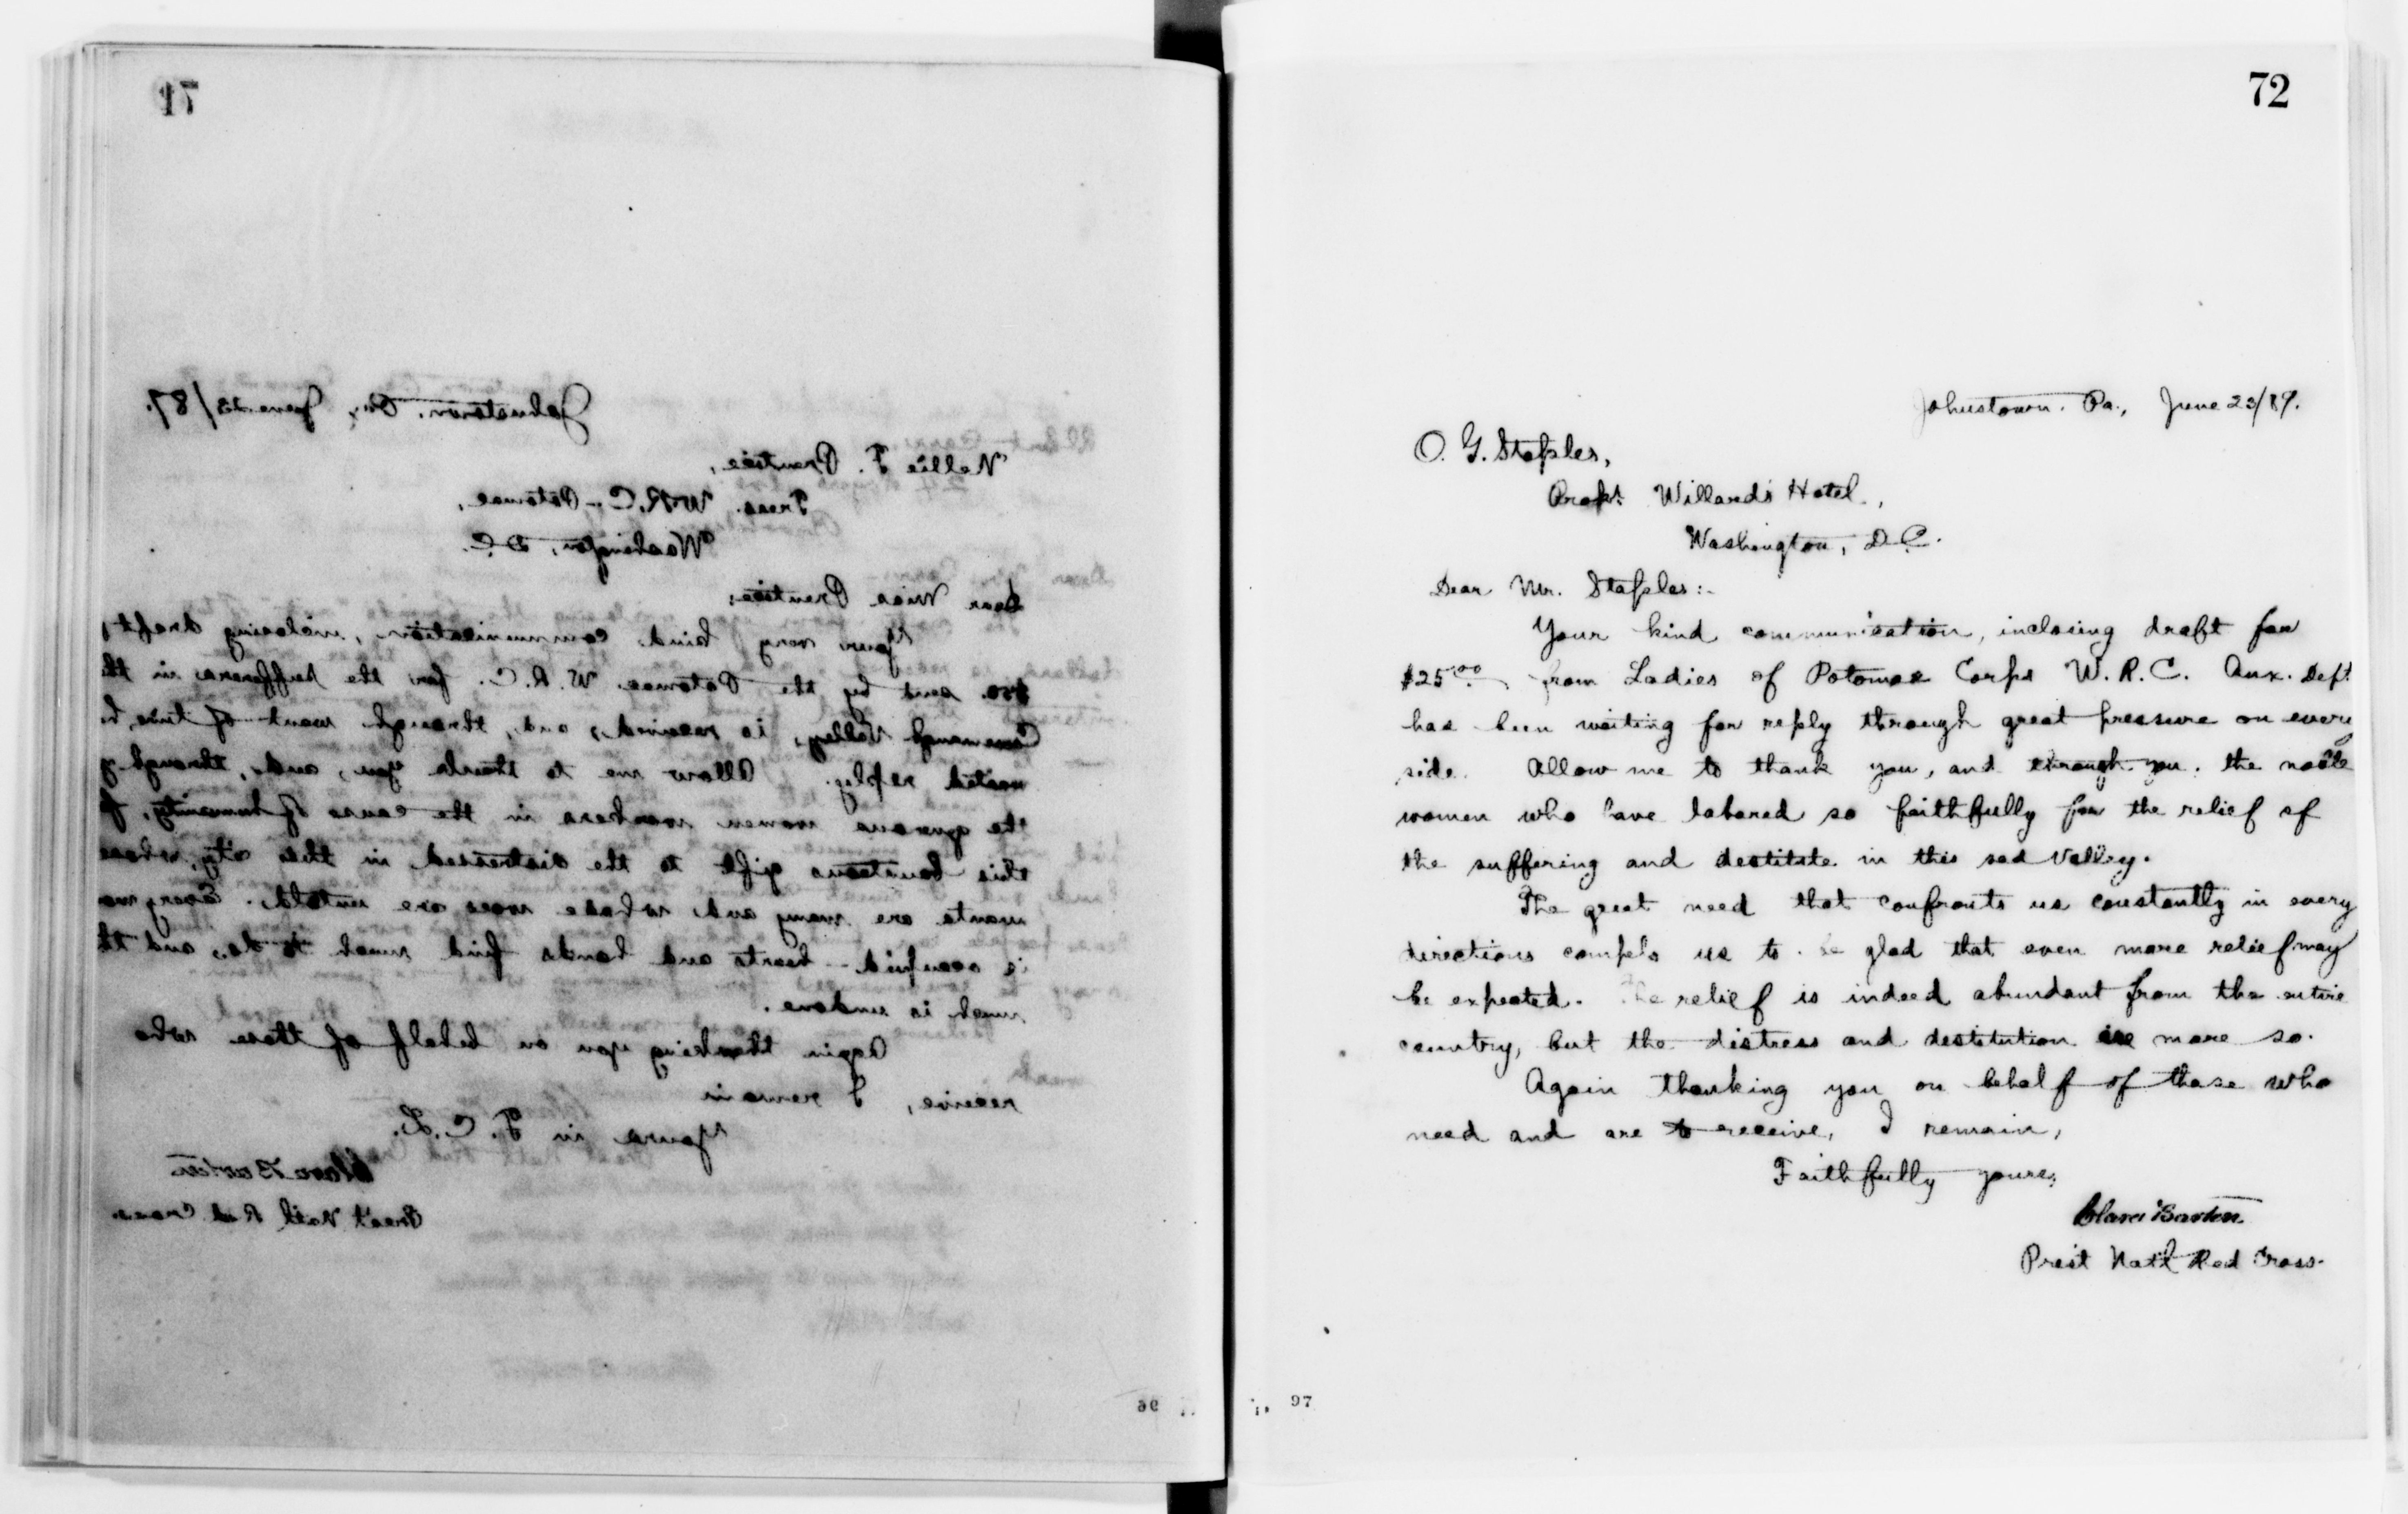 71
Johnstown, Pa., June 23/89.
Nellie T. Prentice,
Treas. W.R.C. - Potomac,
Washington, D.C.
Dear Miss Prentice;
Your very kind communication, inclosing draft,
$50. sent by the Potomac W. R. C. for the sufferers in th
Conemaugh Valley, is received, and, through want of time, h
waited reply. Allow me to thank you, and, through y
the generous women workers in the cause of humanity, f
this bounteous gift to the distressed in this city, whose
wants are many and whose woes are untold. Every mo
is occupied - hearts and hands find much to do, and th
much is undone.
Again thanking you on behalf of those who
receive, I remain
Yours in F. C. L.
Clara Barton
Pres't Nat'l Red Cross.
96
72
Johnstown. Pa., June 23/89.
O. G. Staples,
Propt. Willard's Hotel.,
Washington, D.C.
Dear Mr. Staples:-
Your kind communication, inclosing draft for
$25.00 from Ladies of Potomac Corps W. R. C. Aux. Dept.
has been waiting for reply through great pressure on every
side. Allow me to thank you, and through you, the noble
women who have labored so faithfully for the relief of
the suffering and destitute in this sad Valley.
The great need that confronts us constantly in every
directions compels us to be glad that even more relief may
be expected. The relief is indeed abundant from the entire
country, but the distress and destitution is more so.
Again thanking you on behalf of those who
need and are to receive, I remain,
Faithfully yours,
Clara Barton
Pres't Nat'l Red Cross.
97